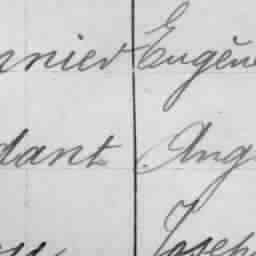 nnier Eugène
dant Ang
Joseph